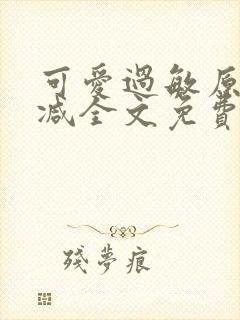 可愛過敏原
減全文免費
殘夢痕